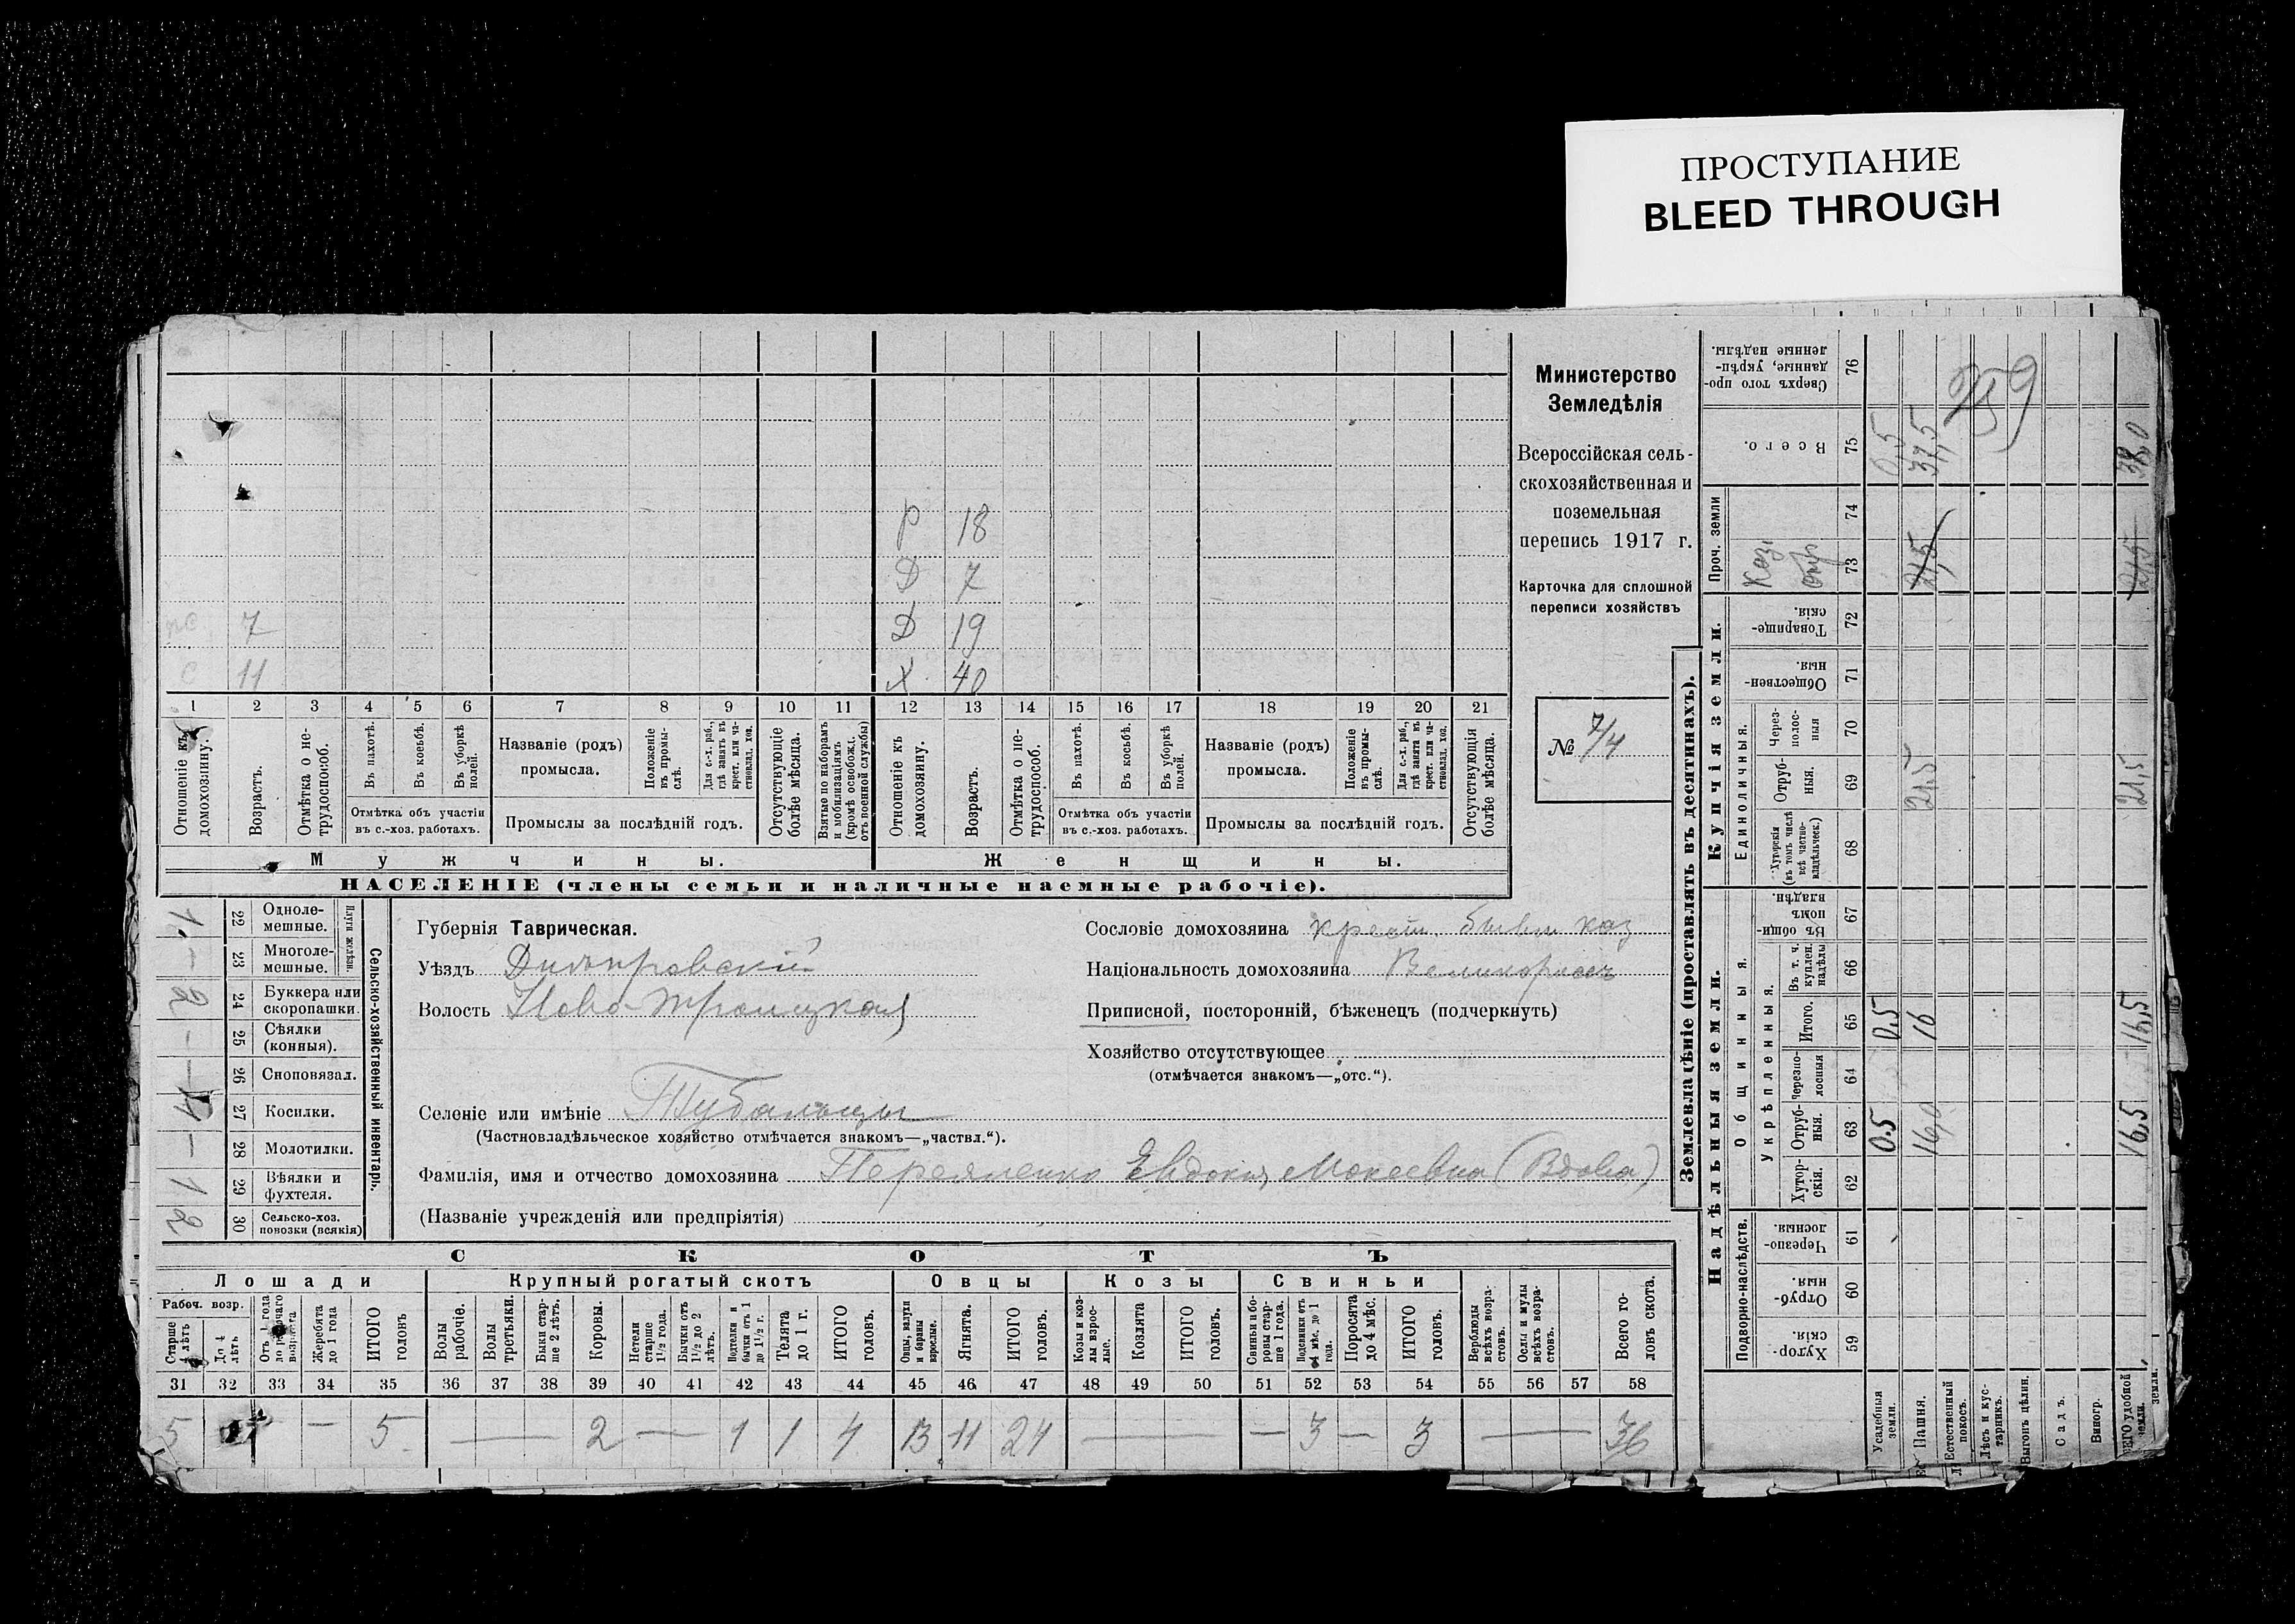 ПРОСТУПАНИЕ
BLEED THROUGH
Министерство
Земледѣлія
Всероссійская сель-
скохозяйственная и
поземельная
перепись 1917 г.
Карточка для сплошной
переписи хозяйствъ
№ 7/4
Р 18
Д 7
7 Д 19
С 11 Х 40
1 2 3 4 5 6 7 8 9 10 11 12 13 14 15 16 17 18 19 20 21
Отношеніе къ домохозяину.
Возрастъ.
Отмѣтка о не-трудоспособ.
Въ пахотѣ.
Въ косьбѣ.
Въ уборкѣ полей.
Отмѣтка объ участіи
въ с.-хоз. работахъ.
Названіе (родъ)
промысла.
Положеніе въ промы-слѣ.
Для с.-х. раб., гдѣ занятъ въ крест. или ча-стновлад. хоз.
Промыслы за послѣдній годъ.
Отсутствующіе болѣе мѣсяца.
Взятые по наборамъ и мобилизаціямъ (кромѣ освобожд. отъ военной службы)
Отношеніе къ домохозяину.
Возрастъ.
Отмѣтка о не-трудоспособ.
Въ пахотѣ.
Въ косьбѣ.
Въ уборкѣ полей.
Отмѣтка объ участіи
въ с.-хоз. работахъ.
Названіе (родъ)
промысла.
Положеніе въ промы-слѣ.
Для с.-х. раб., гдѣ занята въ крест. или ча-стновлад. хоз.
Промыслы за послѣдній годъ.
Отсутствующія болѣе мѣсяца.
Мужчины. Женщины.
НАСЕЛЕНІЕ (члены семьи и наличные наемные рабочіе).
Сельско-хозяйственный инвентарь.
Плуги желѣзн.
1 22 Одноле-мешные.
– 23 Многоле-мешные.
2 24 Буккера или скоропашки.
– 25 Сѣялки (конныя).
– 26 Сноповязал.
1 27 Косилки.
– 28 Молотилки.
1 29 Вѣялки и фухтеля.
2 30 Сельско-хоз. повозки (всякія)
Губернія Таврическая.
Уѣздъ Днѣпровскій
Волость Ново-Троицкая
Селеніе или имѣніе
(Частновладѣльческое хозяйство отмѣчается знакомъ—„частвл.“).
Фамилія, имя и отчество домохозяина Евдокия Мокеевна (Вдова)
(Названіе учрежденія или предпріятія)
Сословіе домохозяина крест. бывш каз
Національность домохозяина Великороссъ
Приписной, посторонній, бѣженецъ (подчеркнуть)
Хозяйство отсутствующее
(отмѣчается знакомъ—„отс.“).
СКОТЪ
Лошади Крупный рогатый скотъ Овцы Козы Свиньи
Рабоч. возр.
Старше 4 лѣтъ
До 4 лѣтъ
Отъ 1 года до рабочаго возраста
Жеребята до 1 года
ИТОГО головъ
Волы рабочіе.
Волы третьяки.
Быки стар-ше 2 лѣтъ.
Коровы.
Нетели старше 1½ года.
Бычки отъ 1½ до 2 лѣтъ.
Подтелки и бычки отъ 1 до 1½ г.
Телята до 1 г.
ИТОГО головъ.
Овцы, валухи и бараны взрослые.
Ягнята.
ИТОГО головъ.
Козы и коз-лы взрос-лые.
Козлята
ИТОГО головъ.
Свиньи и бо-ровы стар-ше 1 года.
Подсвинки отъ 4 мѣс. до 1 года.
Поросята до 4 мѣс.
ИТОГО головъ.
Верблюды всѣхъ возра-стовъ.
Ослы и мулы всѣхъ возра-стовъ.
Всего го-ловъ скота.
31 32 33 34 35 36 37 38 39 40 41 42 43 44 45 46 47 48 49 50 51 52 53 54 55 56 57 58
5 – 5 — 2 — 1 1 4 13 11 24 — – 3 – 3 — 36
Землевладѣніе (проставлять въ десятинахъ).
Надѣльныя земли. Купчія земли. Проч. земли
Подворно-наслѣдств.
Общинныя.
Укрѣпленныя.
Единоличныя.
Хутор-скія. 59
Отруб-ныя. 60
Черезпо-лосныя. 61
Хутор-скія. 62
Отруб-ныя. 63
Черезпо-лосныя 64
Итого. 65
Въ т. ч. куплен. надѣлы 66
Въ общи-номъ владѣн. 67
Хуторскія (въ томъ числѣ всѣ частно-владѣльческ.) 68
Отруб-ныя. 69
Через-полос-ныя 70
Обществен-ныя. 71
Товарище-скія. 72
73
74
Всего. 75
Сверхъ того про-данные, укрѣп-ленные надѣлы. 76
Усадебныя земли. 0.5 0,5 0,5
Пашня. 16,0 16 21,5 21,5 37,5
Естественный покосъ.
Лѣсъ и кус-тарникъ.
Выгонъ цѣлин.
Садъ.
Виногр.
удобной земли. 16,5 16,5 21,5 21,5 38,0
259